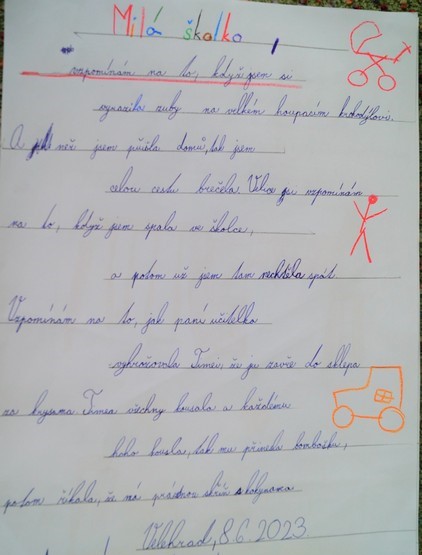 Milá školko,
vzpomínám na to, když jsem si
vyrazila zuby na velkém houpacím krokodýlovi.
A než jsem přišla domů, tak jsem
celou cestu brečela. Velice vzpomínám
na to, když jsem spala ve školce,
a potom už jsem tam nechtěla spát.
Vzpomínám na to, jak paní učitelka
vyhrožovala Timei, že ju zavře do sklepa
za krysama. Timea všechny kousala a každému
koho kousla, tak mu přinesla bonboška,
potom říkala, že má prázdnou skříň s kokinama.
Velehrad, 8.6.2023.